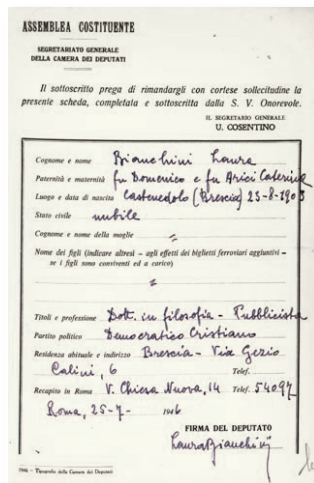 ASSEMBLEA COSTITUENTE
SEGRETARIATO GENERALE
DELLA CAMERA DEI DEPUTATI
Il sottoscritto prega di rimandargli con cortese sollecitudine la
presente scheda, completata e sottoscritta dalla S. V. Onorevole.
IL SEGRETARIO GENERALE
U. COSENTINO
Cognome e nome Bianchini Laura
Paternità e maternità fu Domenico e fu Arici Caterina
Luogo e data di nascita Castenedolo (Brescia) 23-8-1903
Stato civile nubile
Cognome e nome della moglie =
Nome dei figli (indicare altresì - agli effetti dei biglietti ferroviari aggiuntivi -
se i figli sono conviventi ed a carico)
=
Titoli e professione Dott. in filosofia - Pubblicista
Partito politico Democratico Cristiano
Residenza abituale e indirizzo Brescia - Via Gezio
Calini, 6 Telef.
Recapito in Roma V. Chiesa Nuova, 14 Telef. 54097
Roma, 25-7- 1946
FIRMA DEL DEPUTATO
Laura Bianchini
7946 - Tipografia della Camera dei Deputati